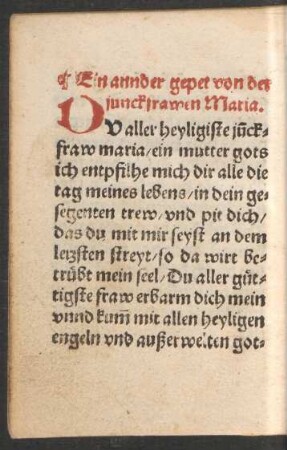 ¶ Ein annder gepet von der
junckfrawen Maria.
DV aller heyligiste jūck-
fraw maria/ein mutter gots
ich entpfilhe mich dir alle die
tag meines lebens/in dein ge-
segenten trew/vnd pit dich/
das du mit mir seyst an dem
letzsten streyt/so da wirt be-
trübt mein seel/Du aller güt-
tigste fraw erbarm dich mein
vnnd kum̄ mit allen heyligen
engeln vnd außerwelten got-